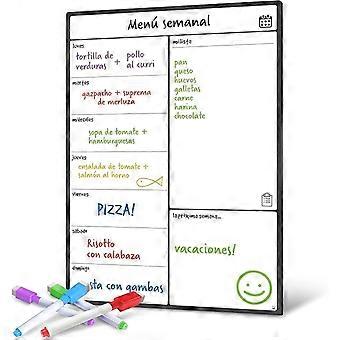 Menú semanal
lunes
tortilla de + pollo
verduras al curri
martes
gazpacho + suprema
de merluza
miércoles
sopa de tomate +
hamburguesas
jueves
ensalada de tomate +
salmón al horno
viernes
PIZZA!
sábado
Risotto
con calabaza
domingo
sta con gambas
mi lista
pan
queso
huevos
galletas
carne
harina
chocolate
la próxima semana...
vacaciones!